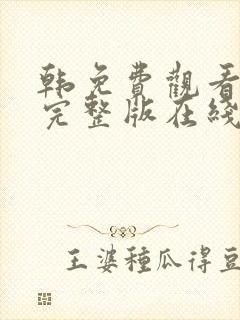 韩免費觀看
完整版在綫
王婆種瓜得豆